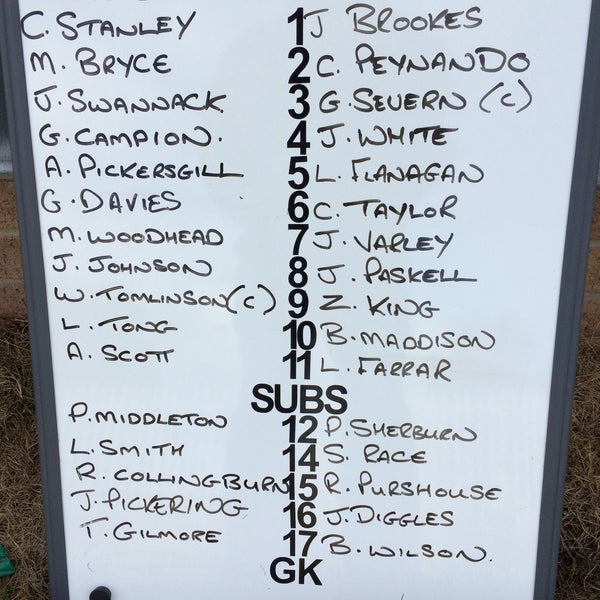 C. STANLEY 1 J BROOKES
M. BRYCE 2 C. PEYNANDO
J. SWANNACK 3 G. SEVERN (C)
G. CAMPION. 4 J. WHITE
A. PICKERSGILL 5 L. FLANAGAN
G. DAVIES 6 C. TAYLOR
M. WOODHEAD 7 J. VARLEY
J. JOHNSON 8 J. PASKELL
W. TOMLINSON (C) 9 Z. KING
L. TONG 10 B. MADDISON
A. SCOTT 11 L. FARRAR
SUBS
P. MIDDLETON 12 P. SHERBURN
L. SMITH 14 S. RACE
R. COLLINGBURN 15 R. PURSHOUSE
J. PICKERING 16 J. DIGGLES
T. GILMORE 17 B. WILSON.
GK